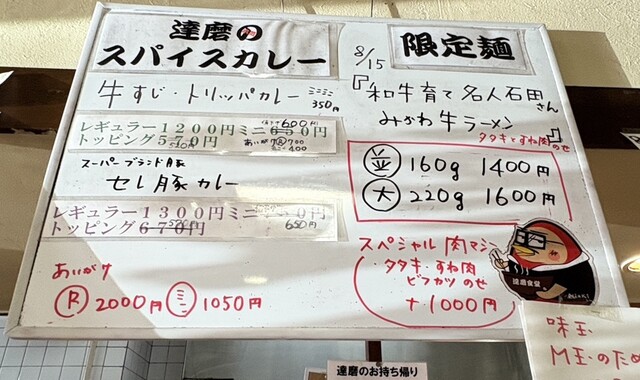 達磨の
スパイスカレー
牛すじ・トリッパカレー ミニミニ 350円
レギュラー1200円ミニ650円 600円
トッピング570円 あいがけ 700 400
スーパーブランド豚
セレ豚カレー
レギュラー1300円ミニ 円 650円
トッピング670円
あいがけ
R 2000円 ミニ 1050円
8/15
限定麺
『和牛育て名人石田さん
みかわ牛ラーメン』
タタキとすね肉のせ
並 160g 1400円
大 220g 1600円
スペシャル肉マシ
・タタキ・すね肉
ビフカツのせ
+1000円
達磨食堂
味玉
M玉のため
達磨のお持ち帰り